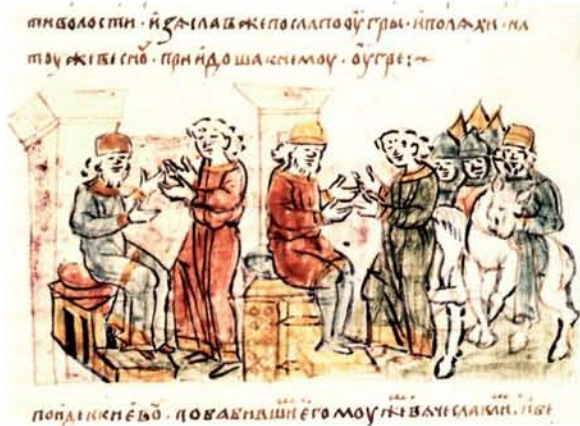 тиволости · изѧславъжепослапооугры · иполѧхи · на
тоужевеснꙋ · приидошакнемоу · оугре:~
поидеккиевꙋ · повабившиегомоужевѧчеславли · иве